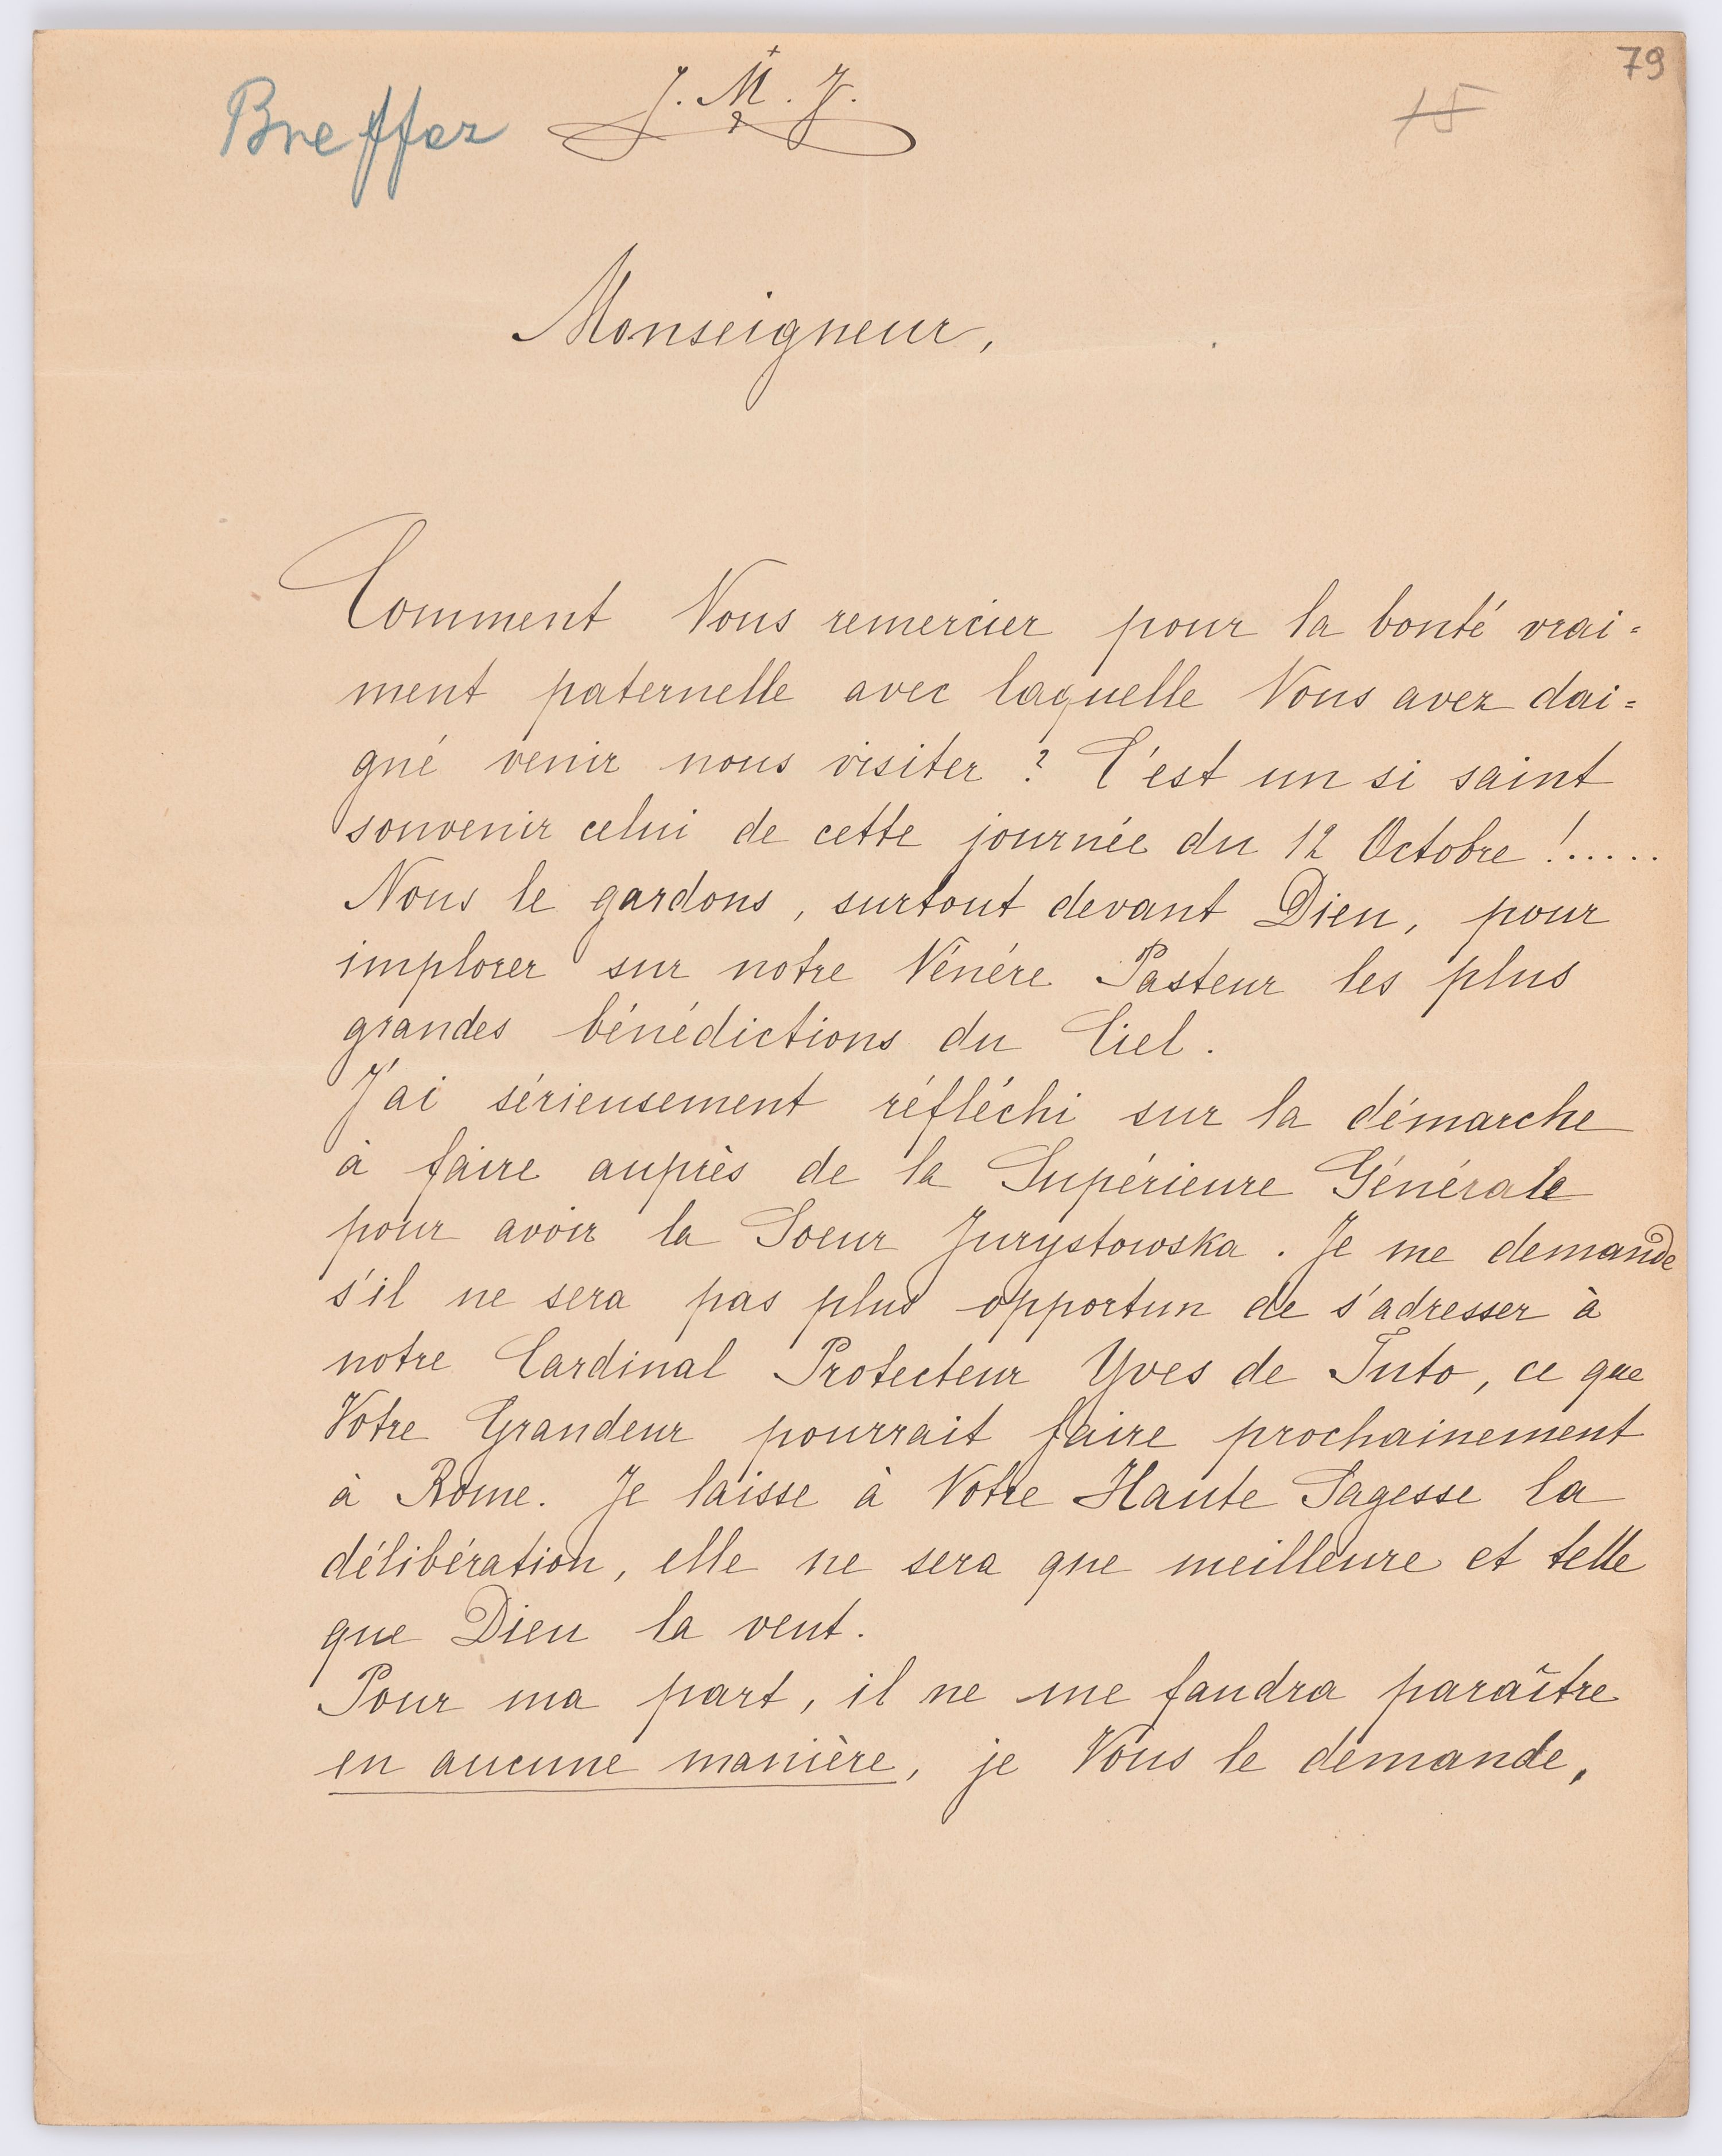 79
Breffer J. M. J.
15
Monseigneur,
Comment Vous remercier pour la bonté vrai=
ment paternelle avec laquelle Vous avez dai=
gné venir nous visiter ? C'est un si saint
souvenir celui de cette journée du 12 Octobre !.....
Nous le gardons, surtout devant Dieu, pour
implorer sur notre Vénére Pasteur les plus
grandes bénédictions du Ciel.
J'ai sérieusement réfléchi sur la démarche
à faire auprès de la Supérieure Générale
pour avoir la Soeur Jurystowska. Je me demande
s'il ne sera pas plus opportun de s'adresser à
notre Cardinal Protecteur Yves de Tuto, ce que
Votre Grandeur pourrait faire prochainement
à Rome. Je laisse à Votre Haute Sagesse la
délibération, elle ne sera que meilleure et telle
que Dieu la veut.
Pour ma part, il ne me faudra paraître
en aucune manière, je Vous le demande,